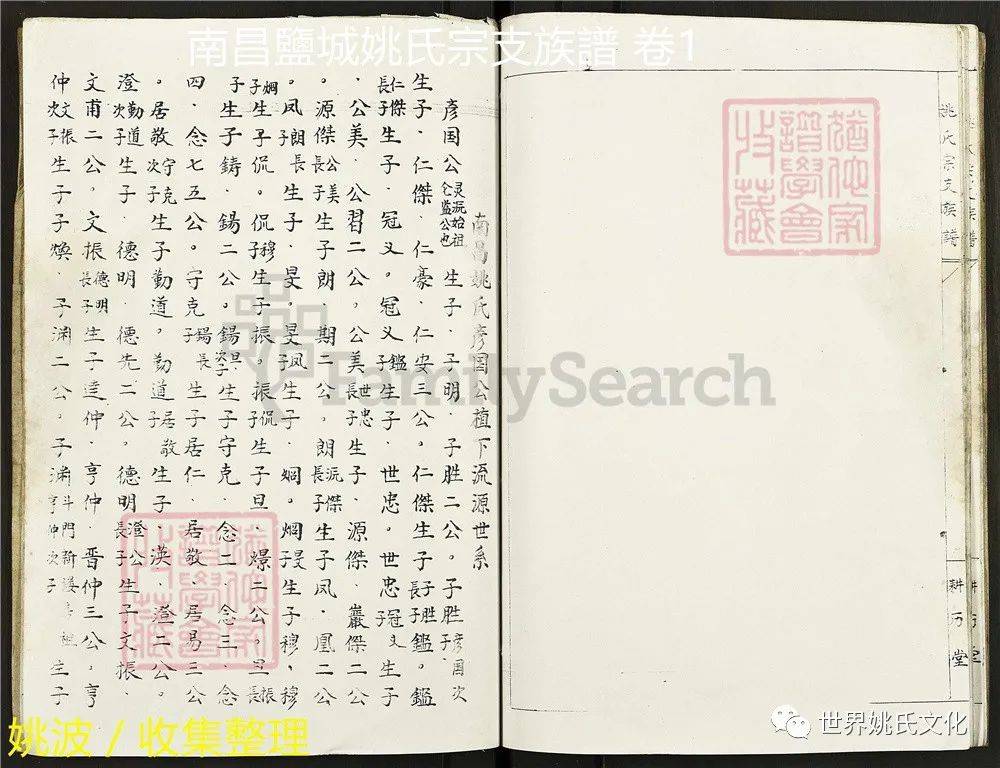 南昌鹽城姚氏宗支族譜 卷1
猶他家譜學會收藏
姚氏宗支族譜
耕方堂
南昌姚氏彥国公植下流源世系
彥国公 灵沅始祖仑监公也 生子．子明．子胜二公。子胜 彥国次子
生子．仁傑．仁豪．仁安三公。仁傑生子 子胜長子 鑑。鑑
仁傑長子 生子．冠义。冠义 鑑子 生子．世忠。世忠 冠义子 生子
．公美．公習二公。公美 世忠長子 生子．源傑．巖傑二公
。源傑 公美長子 生子朗．期二公。朗 沅傑長子 生子凤．凰二公
。凤 朗長子 生子．旻。旻 凤子 生子．烱。烱 旻子 生子穆．穆
烱子 生子侃。侃 穆子 生子振。振 侃子 生子旦．㬌二公。旦 振長
子 生子鑄．鍚二公。鍚 旦次子 生子守克．念二．念三．念
四．念七五公。守克 鍚長子 生子居仁．居敬．居易三公
。居敬 守克次子 生子勤道。勤道 居敬子 生子．漢．澄二公。
澄 勤道次子 生子．德明．德先二公。德明 澄公長子 生子文振．
文甫二公。文振 德明長子 生子達仲．亨仲．晋仲三公．亨
仲 文振次子 生子子煥．子渊二公。子渊 亨仲次子 斗門 祖 生子
猶他家譜學會收藏
FamilySearch
姚波 / 收集整理
世界姚氏文化